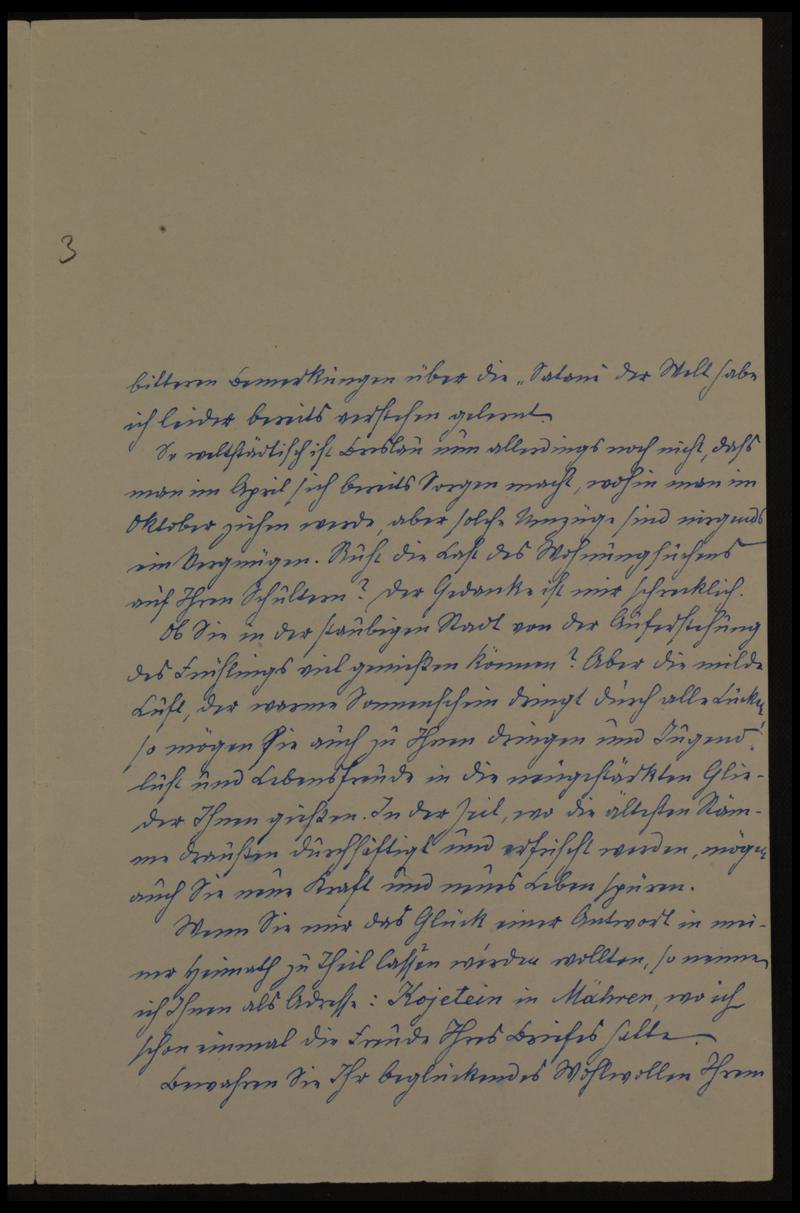 3
bitteren Bemerkungen über die „Satani der Welt habe
ich leider bereits verstehen gelernt.
So weltstädtisch ist Breslau nun allerdings noch nicht, dass
man im April sich bereits Sorgen macht, wohin man im
Oktober ziehen werde, aber solche Umzüge sind nirgends
ein Vergnügen. Ruht die Last des Wohnungsuchens
auf Ihren Schultern? Der Gedanke ist mir schrecklich.
Ob Sie in der staubigen Stadt von der Auferstehung
des Frühlings viel genießen können? Aber die milde
Luft, der warme Sonnenschein dringt durch alle Lücken,
so mögen sie auch zu Ihnen dringen und Jugend-
lust und Lebensfreude in die neugestärkten Glie-
der Ihnen gießen. In der Zeit, wo die ältesten Stäm-
me draußen durchsäftigt und erfrischt werden, mögen
auch Sie neue Kraft und neues Leben spüren.
Wenn Sie mir das Glück einer Antwort in mei-
ner Heimath zu Theil lassen werden wollten, so nenne
ich Ihnen als Adresse: Kojetein in Mähren, wo ich
schon einmal die Freude Ihres Briefes hatte.
Bewahren Sie Ihr beglückendes Wohlwollen Ihrem